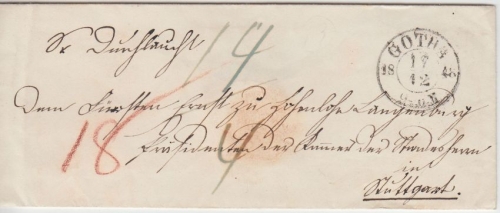 Sr Durchlaucht
14
GOTHA
18 17/12 48
Dem Fürsten Ernst zu Hohenlohe Langenburg
18
Präsidenten der Kammer der Standesherrn
4
in
Stuttgart.